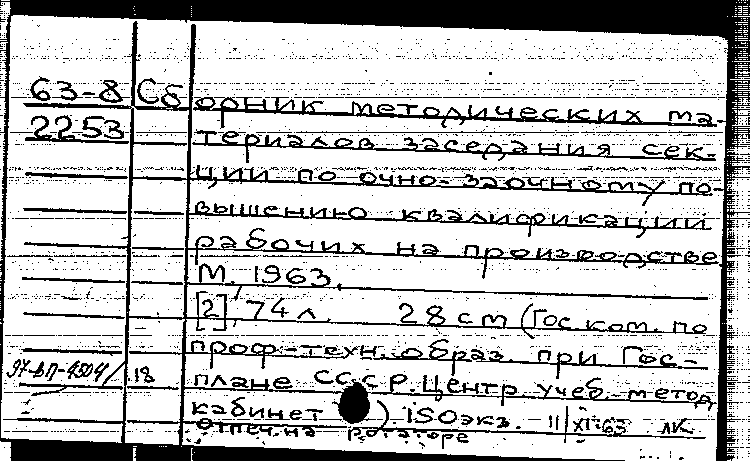 63-8 Сборник методических ма-
2253 териалов заседания сек-
ции по очно-заочному по-
вышению квалификации
рабочих на производстве
М., 1963.
[2], 74 л. 28 cm (Гос. ком. по
проф-техн. образ. при Гос-
18 плане СССР. Центр. учеб. метод.
кабинет ). 150 экз. 11/XI-63 лк
Отпеч. на ротаторе